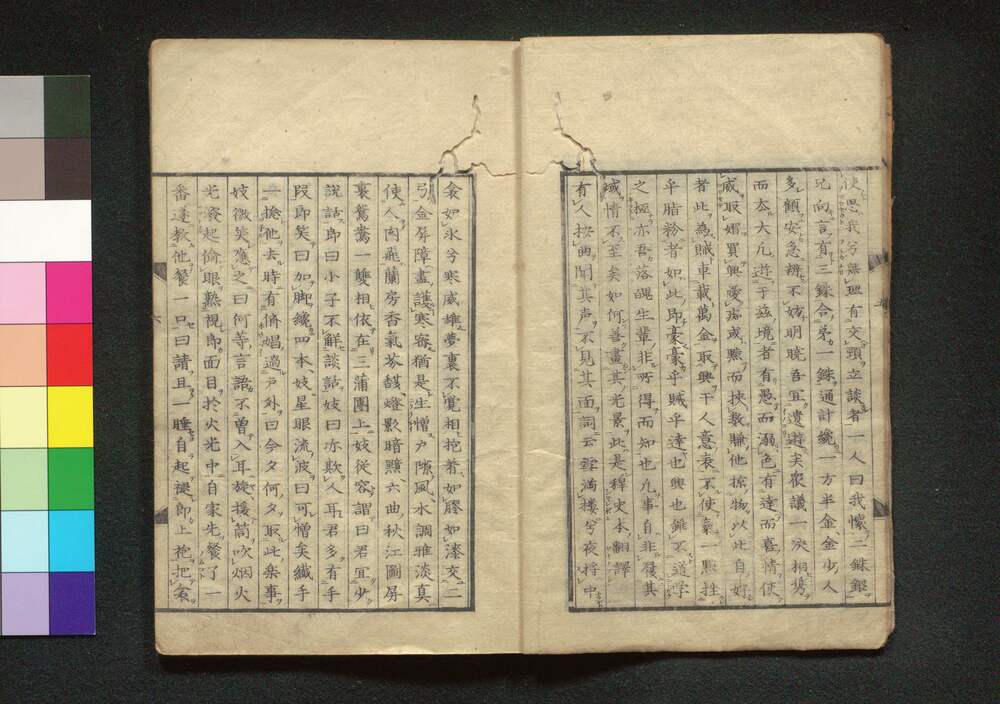 使思我兮無理有交頸立談者一人曰我懷二銖銀
兄向言有三銖合弟一銖通計纔一方半金金少人
多顧安急辨不妨明晓吾宜遺遊矣衆議一决相携
而去大凡遊于茲境者有愚而溺色有達而喜情使
威取媚買興愛或賺而挾数賺他掠物以此自好
者此為賊車載萬金取興于人意表不使氣一點牲
乎脂粉者如此即豪豪乎賊乎達也興也雖不道学
之極亦吾落魄生輩非所得而知也凡事自非履其
域情不至矣如何善畫其光景此是稗史本翻譯
有人按曲聞其声不見其面詞云雪満楼兮夜将中
衾如氷兮寒威雄夢裏不覚相抱着如膠如漆交二
弓金屏障畫護寒容猶是生憎戸隙風水調雅淡真
使人肉飛蘭房香氣芬馥燈影暗照六曲秋江圖屏
裏鴛鴦一雙相依在三蒲團上妓従容謂曰君宜少
説話郎曰小子不解談話妓曰亦欺人耳君多有手
段郎笑曰加脚纔四本妓星眼流波曰可憎矣纎手
一撿他去時有儕娼過戸外曰今夕何夕取此楽事
妓微笑應之曰何等言語不曽入耳旋援筒吹烟火
光滾起偷眼熟視郎面目於火光中自家先餐了一
番達教他餐一口曰請且一睡自起褪郎上袍把衾